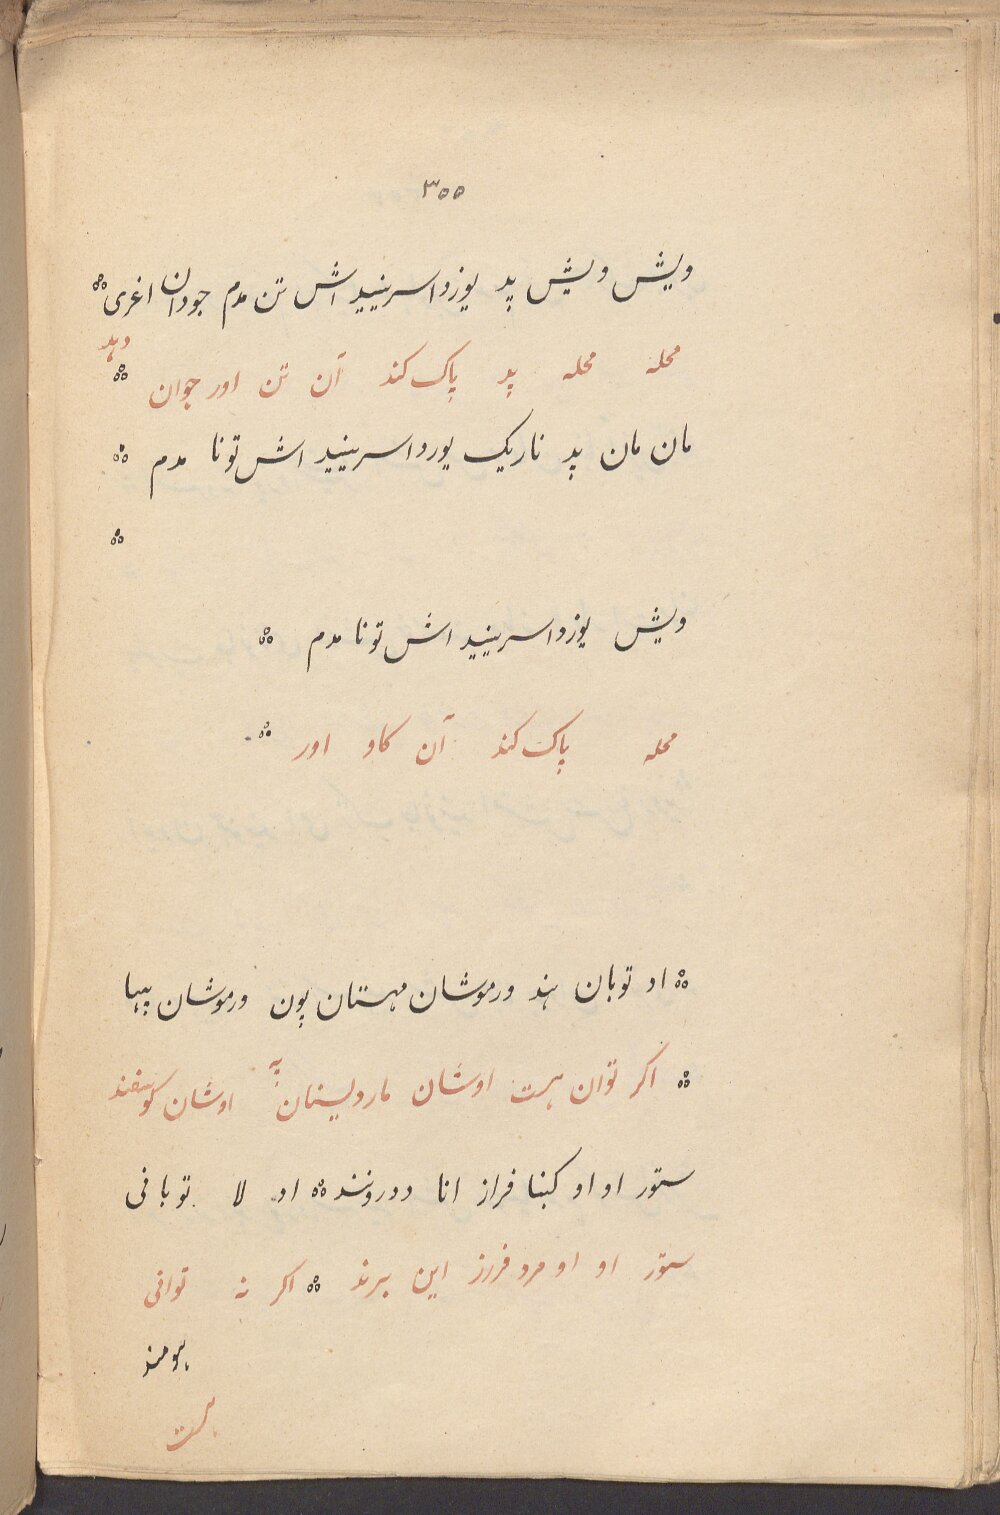 ۳۰۰
ویش ویش پد یوزدا سرینید اش تن مدم جودان اغری
دهد
محله محله پد پاک کند آن تن اور جوان
مان مان پد ناریک یوردا سرینید اش تونا مدم
ویش یوزدا سرینید اش تونا مدم
محله پاک کند آن کاو اور
اد توبان هند ورموشان مهستان پون ورموشان پیها
اکر توان هست اوشان ماردلیستان په اوشان کوسفند
ستور او او کبنا فراز انا ددرونند اد لا توبانی
ستور او او مرد فرزز این برند اکر نه توانی
هومند
هست